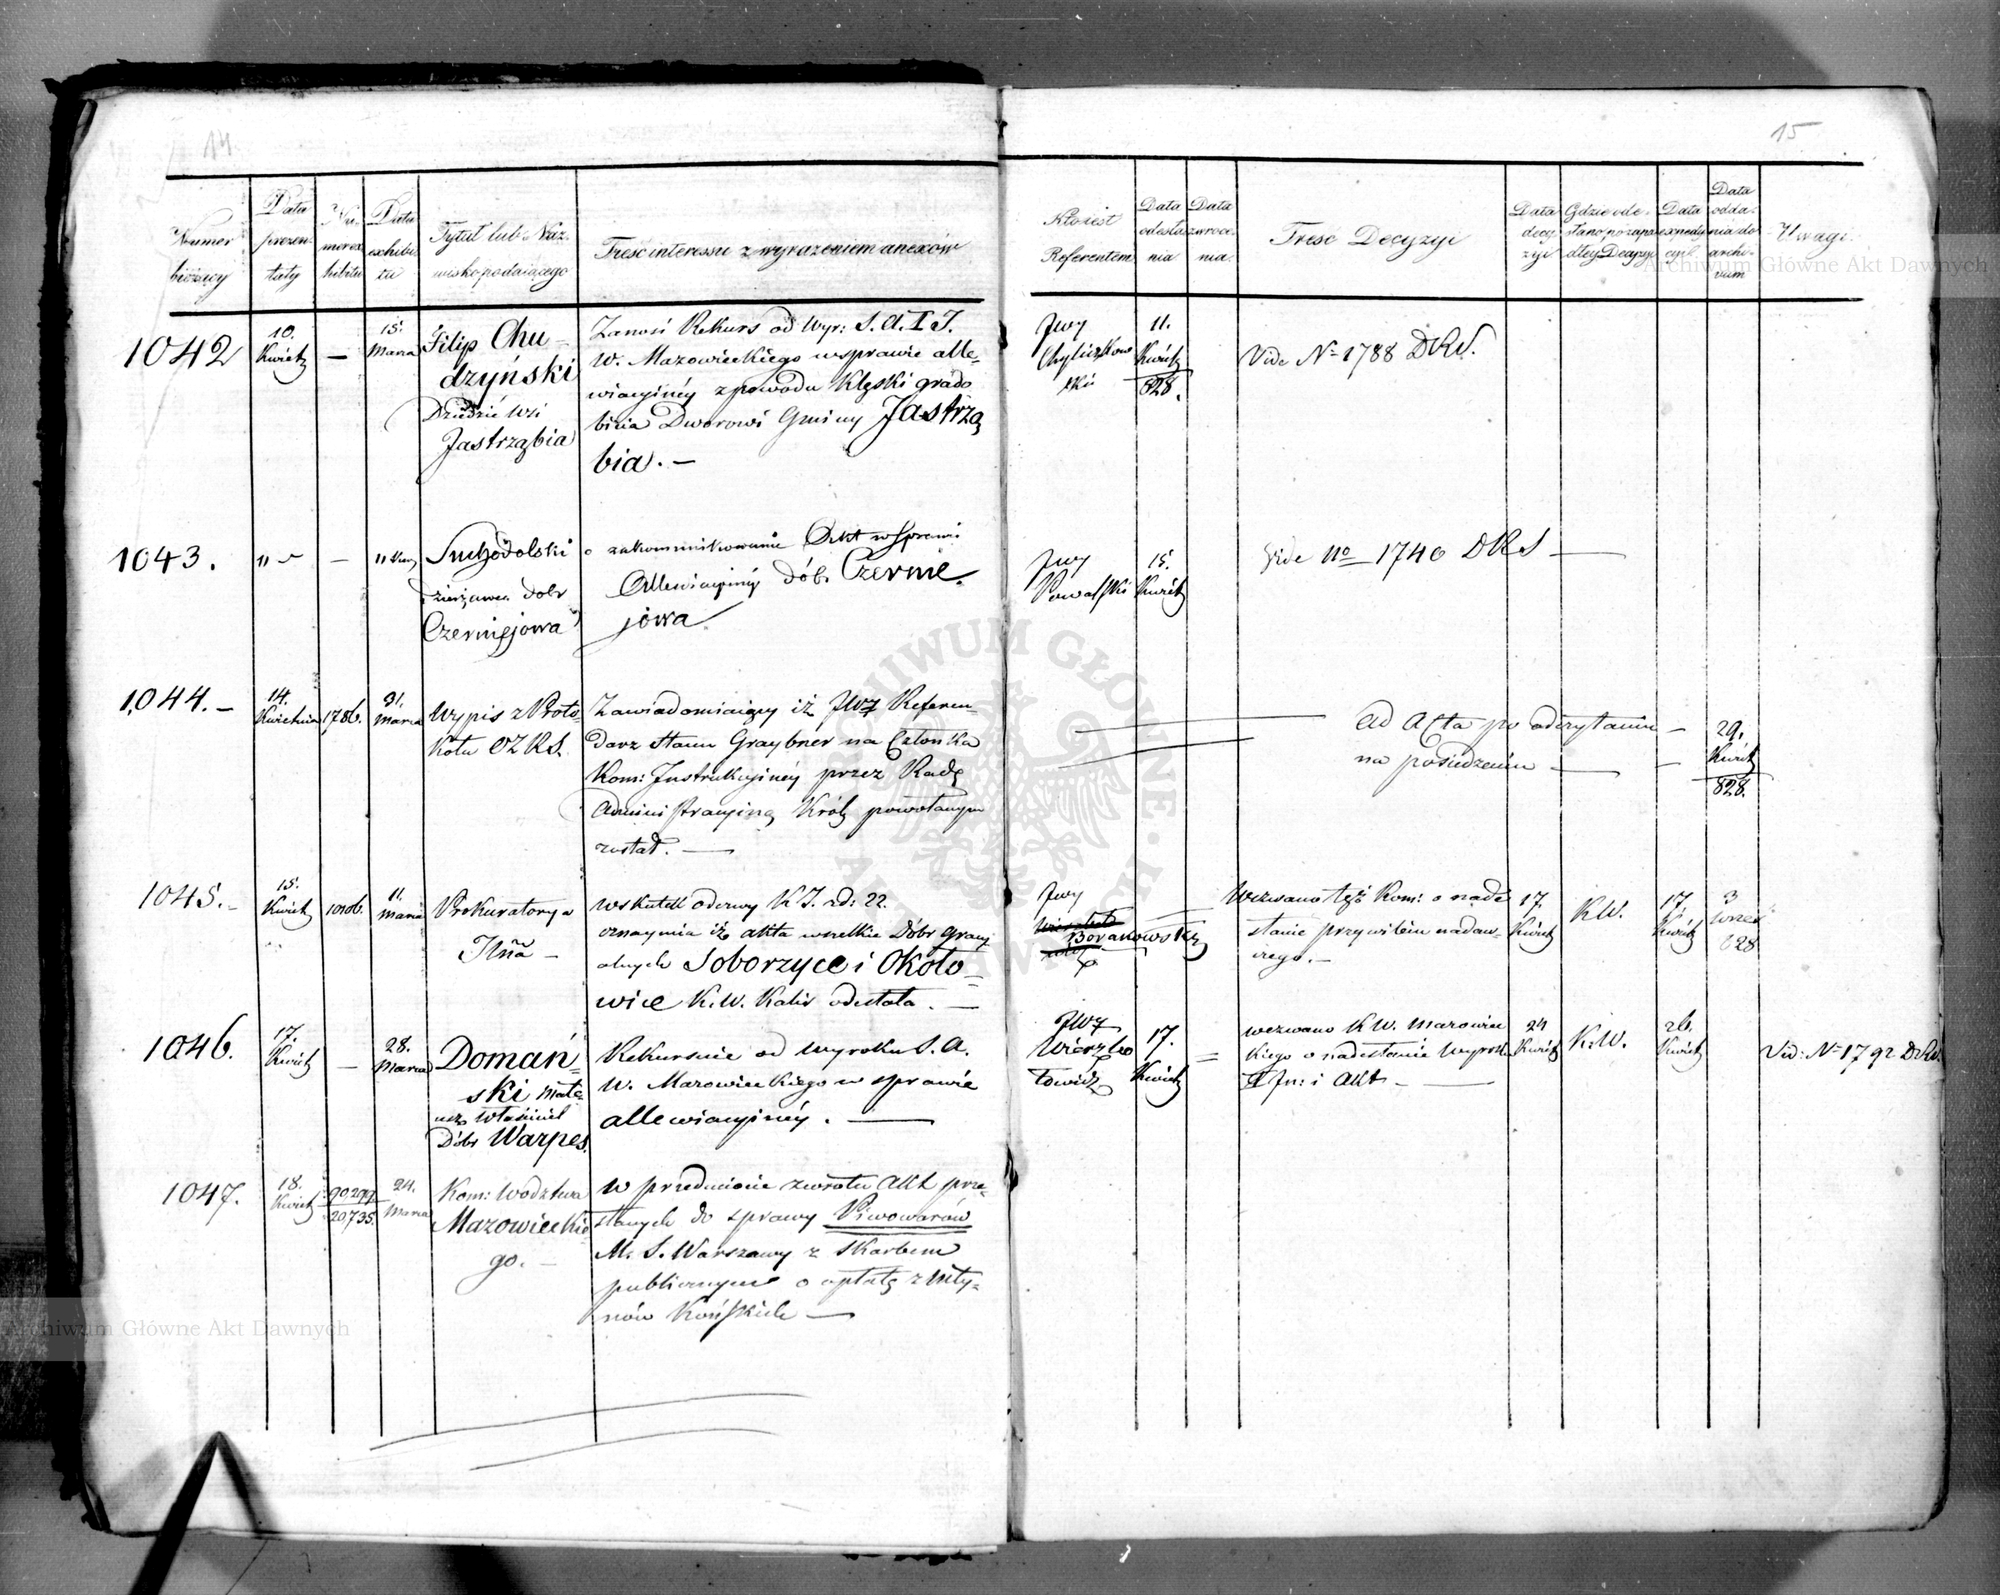 14
15
Numer bieżący
Data prezentaty
Numer exhibitu
Data exhibitu
Tytuł lub Nazwisko podaiącego
Treść interessu z wyrażeniem anexów
Kto iest Referentem
Data odesłania
Data zwrocenia
Treść Decyzyi
Data decyzyi
Gdzie odesłano po zapadłey Decyzyi
Data expedycyi
Data oddania do archivum
Uwagi
1042
10. Kwietn
—
15. Marca
Filip Chu-
dzyński
Dziedzic Wsi
Jastrząbia
Zanosi Rekurs od Wyr: S. A. I I.
W. Mazowieckiego w sprawie alle-
wiacyinéy z powodu Klęski grado
bicia Dworowi Gminy Jastrzą
bia. —
JWy
11. Kwietn 828.
Vide No 1788 DRS.
1043.
—
Suchodolski
dzierżawca dobr
Czerniejowa
o zakommunikowanie Akt w Sprawie
Allewiacyinéy dób. Czernie-
jowa
JWy
Kowalski
15. Kwietn
Vide No 1740 DRS —
1044. –
14. Kwietnia
1786.
31. Marca
Wypis z Proto-
kołu OZRS.
Zawiadomiaiący iż JWy Referen-
darz Stanu Graybner na Członka
Kom: Instrukcyinéy przez Radę
Administracyiną Król: powołanym
został. —
ad Acta po odczytaniu —
na posiedzeniu —
29. Kwietn 828.
1045. –
15. Kwietn
11. Marca
Prokuratorya
Jlna –
Wskutek odezwy K J. ad: 22.
oznaymia iż akta wszelkie Dóbr
Soborzyce i Około-
wice K. W. Kalis odesłała. —
JWy
Boranowski
Wezwano też Kom: o nade
słanie przywileiu nadaw-
czego. –
17. Kwietn
K. W.
17. Kwietn
3 Wrześ 828
1046.
17. Kwietn
—
28. Marca
Domań-
ski Mate-
usz Właściciel
Dóbr Warpes.
Rekursuie od Wyroku S. A.
W. Mazowieckiego w sprawie
allewiacyinéy. —
JWy
Wierzbo
łowicz
17. Kwietn
=
wezwano K W. Mazowiec
kiego o nadesłanie Wyroku
I Jn: i Akt. —
24 Kwietn
K. W.
26. Kwietn
Vid: No 1792 DRS.
1047.
18. Kwietn
90297
20,735.
24. Marca
Kom: Wodztwa
Mazowieckie
go. –
W przedmiocie zwrotu Akt prze-
słanych do sprawy Piwowarów
M. S. Warszawy z Skarbem
publicznym o opłatę z Mły-
nów Końskich —
Archiwum Główne Akt Dawnych
Archiwum Główne Akt Dawnych
ARCHIWUM GŁÓWNE AKT DAWNYCH